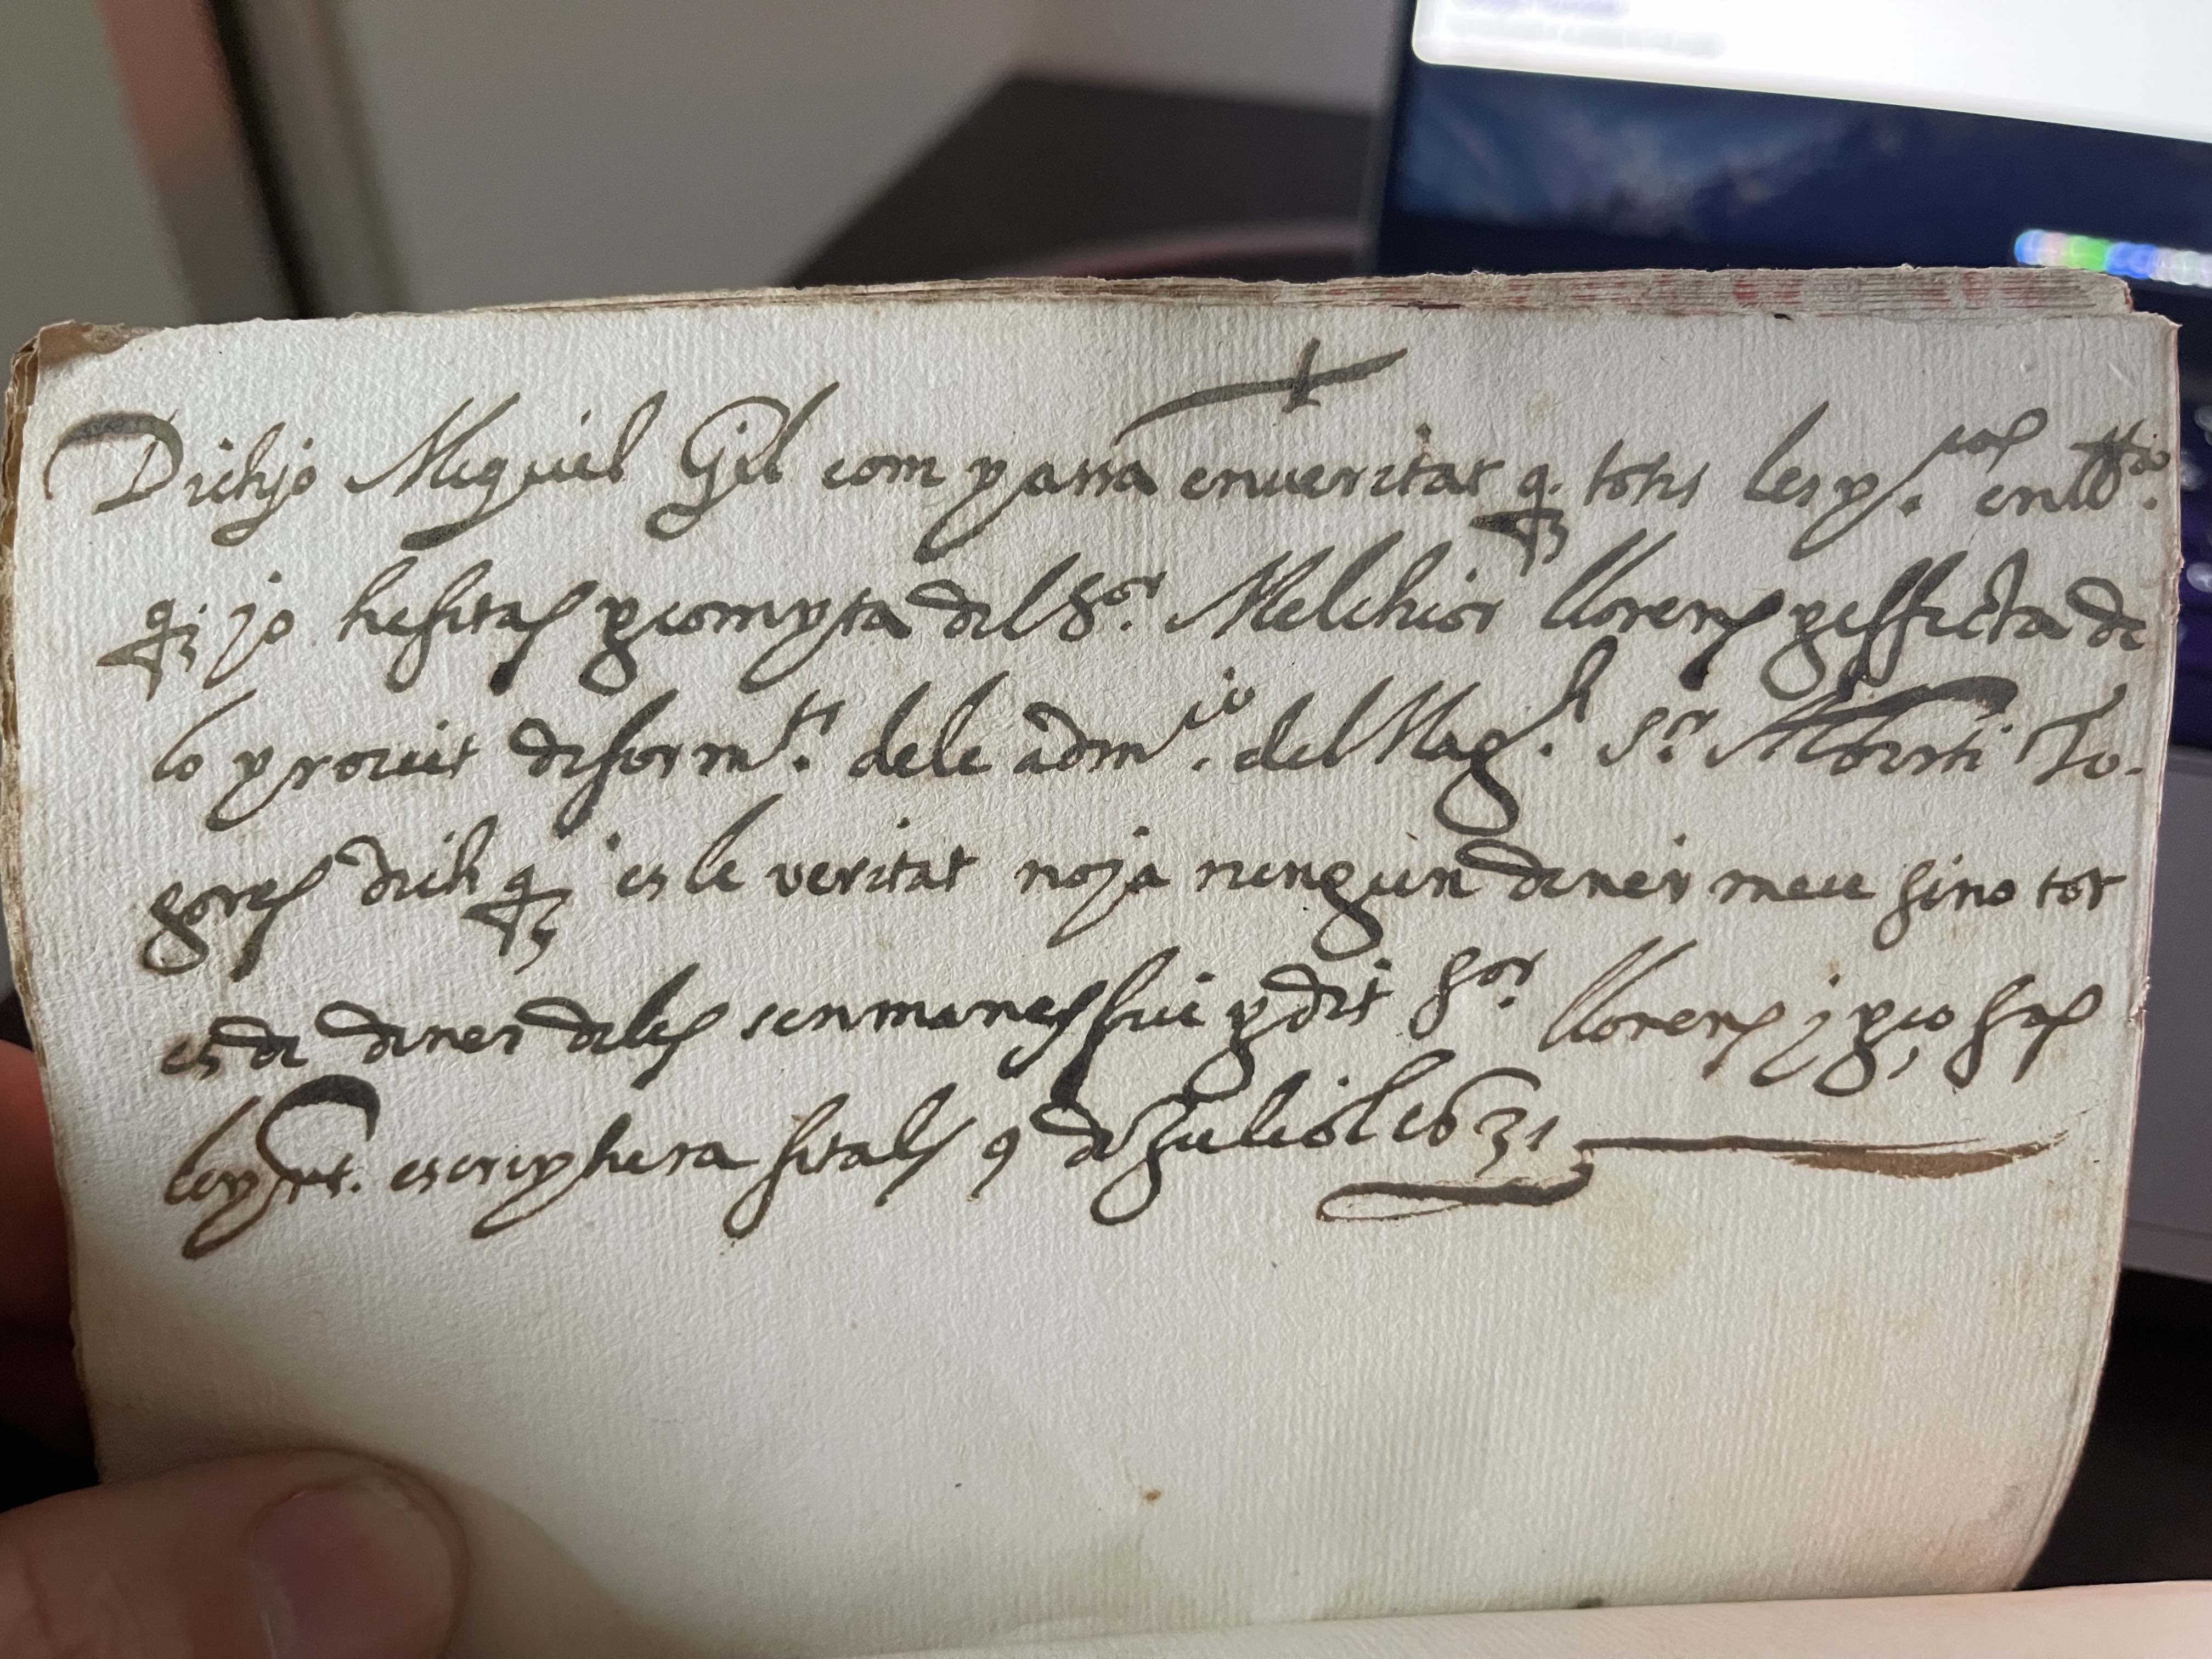 Dich jo Miquel Gil com passa en veritat q. totes les p.
q jo he fetas p compta del Sor. Melchior llorens p effecta de
lo proveit de form.t dele adm.io del Mag.h Sr. Alberti To-
gores dich q es le veritat noja ningun diner meu sino tot
es de diner deles senmanes fue p dit Sor. llorens j p ço fas
le pnt. escriptura fita als 9 de Juliol 1631